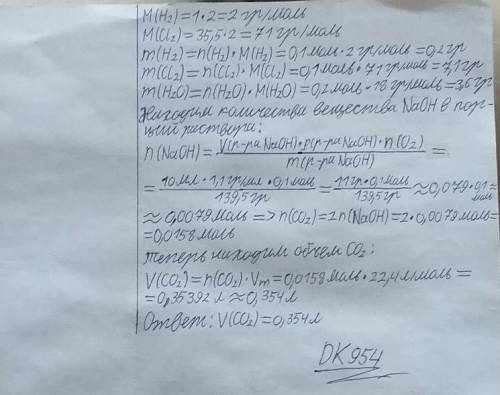 M(H₂)=1·2=2 гр/моль
M(Cl₂)=35,5·2=71 гр/моль
m(H₂)=n(H₂)·M(H₂)=0,1 моль·2 гр/моль=0,2 гр
m(Cl₂)=n(Cl₂)·M(Cl₂)=0,1 моль·71 гр/моль=7,1 гр
m(H₂O)=n(H₂O)·M(H₂O)=0,2 моль·18 гр/моль=3,6 гр
Находим количества вещества NaOH в пор-
ции раствора:
n(NaOH)=V(р-ра NaOH)·ρ(р-ра NaOH)·n(O₂)/m(р-ра NaOH)=
=10 мл·1,1 гр/мл·0,1 моль/139,5 гр=11 гр·0,1 моль/139,5 гр≈0,079·0,1 моль=
≈0,0079 моль=>n(CO₂)=2n(NaOH)=2·0,0079 моль=
=0,0158 моль
Теперь находим объем CO₂:
V(CO₂)=n(CO₂)·Vm=0,0158 моль·22,4 л/моль=
=0,35392 л≈0,354 л
Ответ: V(CO₂)=0,354 л
DK954